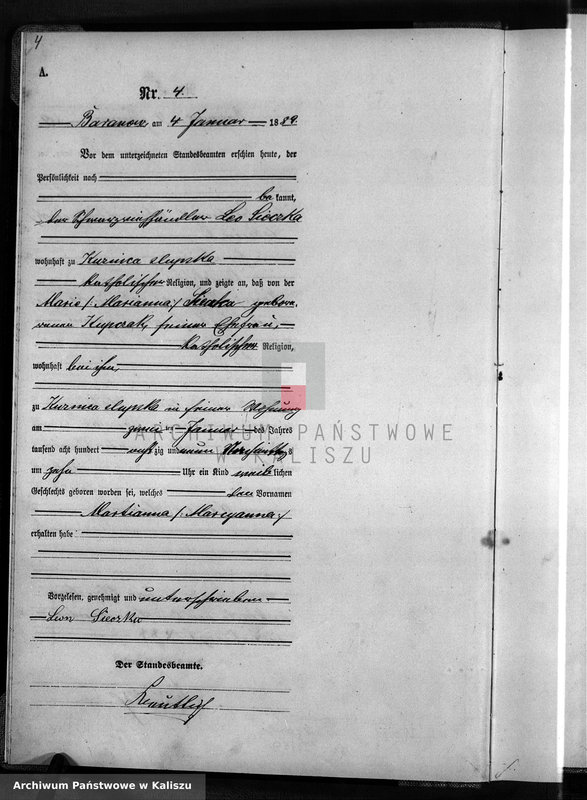 4
A.
Nr. 4.
Baranow am 4 Januar 1889.
Vor dem unterzeichneten Standesbeamten erschien heute, der
Persönlichkeit nach
bekannt,
der Schwarzviehhändler Leo Sieczka
wohnhaft zu Kuznica slupska
katholischer Religion, und zeigte an, daß von der
Marie /Marianna/ Sieczka gebore-
renen Kupczak, seiner Ehefrau,
katholischer Religion,
wohnhaft bei ihm,
zu Kuznica slupska in seiner Wohnung
am zwei ten Januar des Jahres
tausend acht hundert achtzig und neun Vormittags
um zehn Uhr ein Kind weiblichen
Geschlechts geboren worden sei, welches den Vornamen
Martianna /Marcyanna/
erhalten habe
Vorgelesen, genehmigt und unterschrieben
Leon Sieczka
Der Standesbeamte.
ARCHIWUM PAŃSTWOWE
W KALISZU
Archiwum Państwowe w Kaliszu
Archiwum Państwowe w Kaliszu